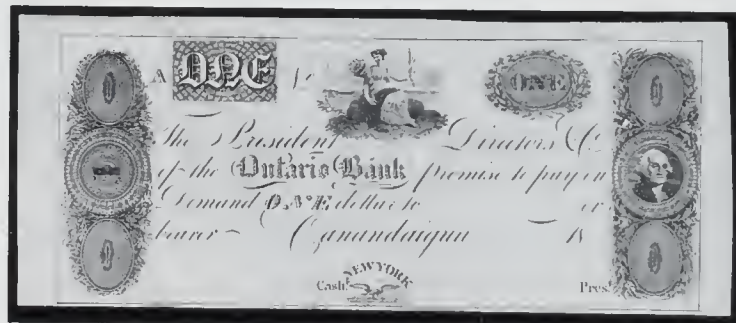 A ONE No ONE
The President Directors & Co
of the Ontario Bank promise to pay on
Demand ONE dollar to or
bearer Canandaigua 18
NEW YORK
Cash. Pres.